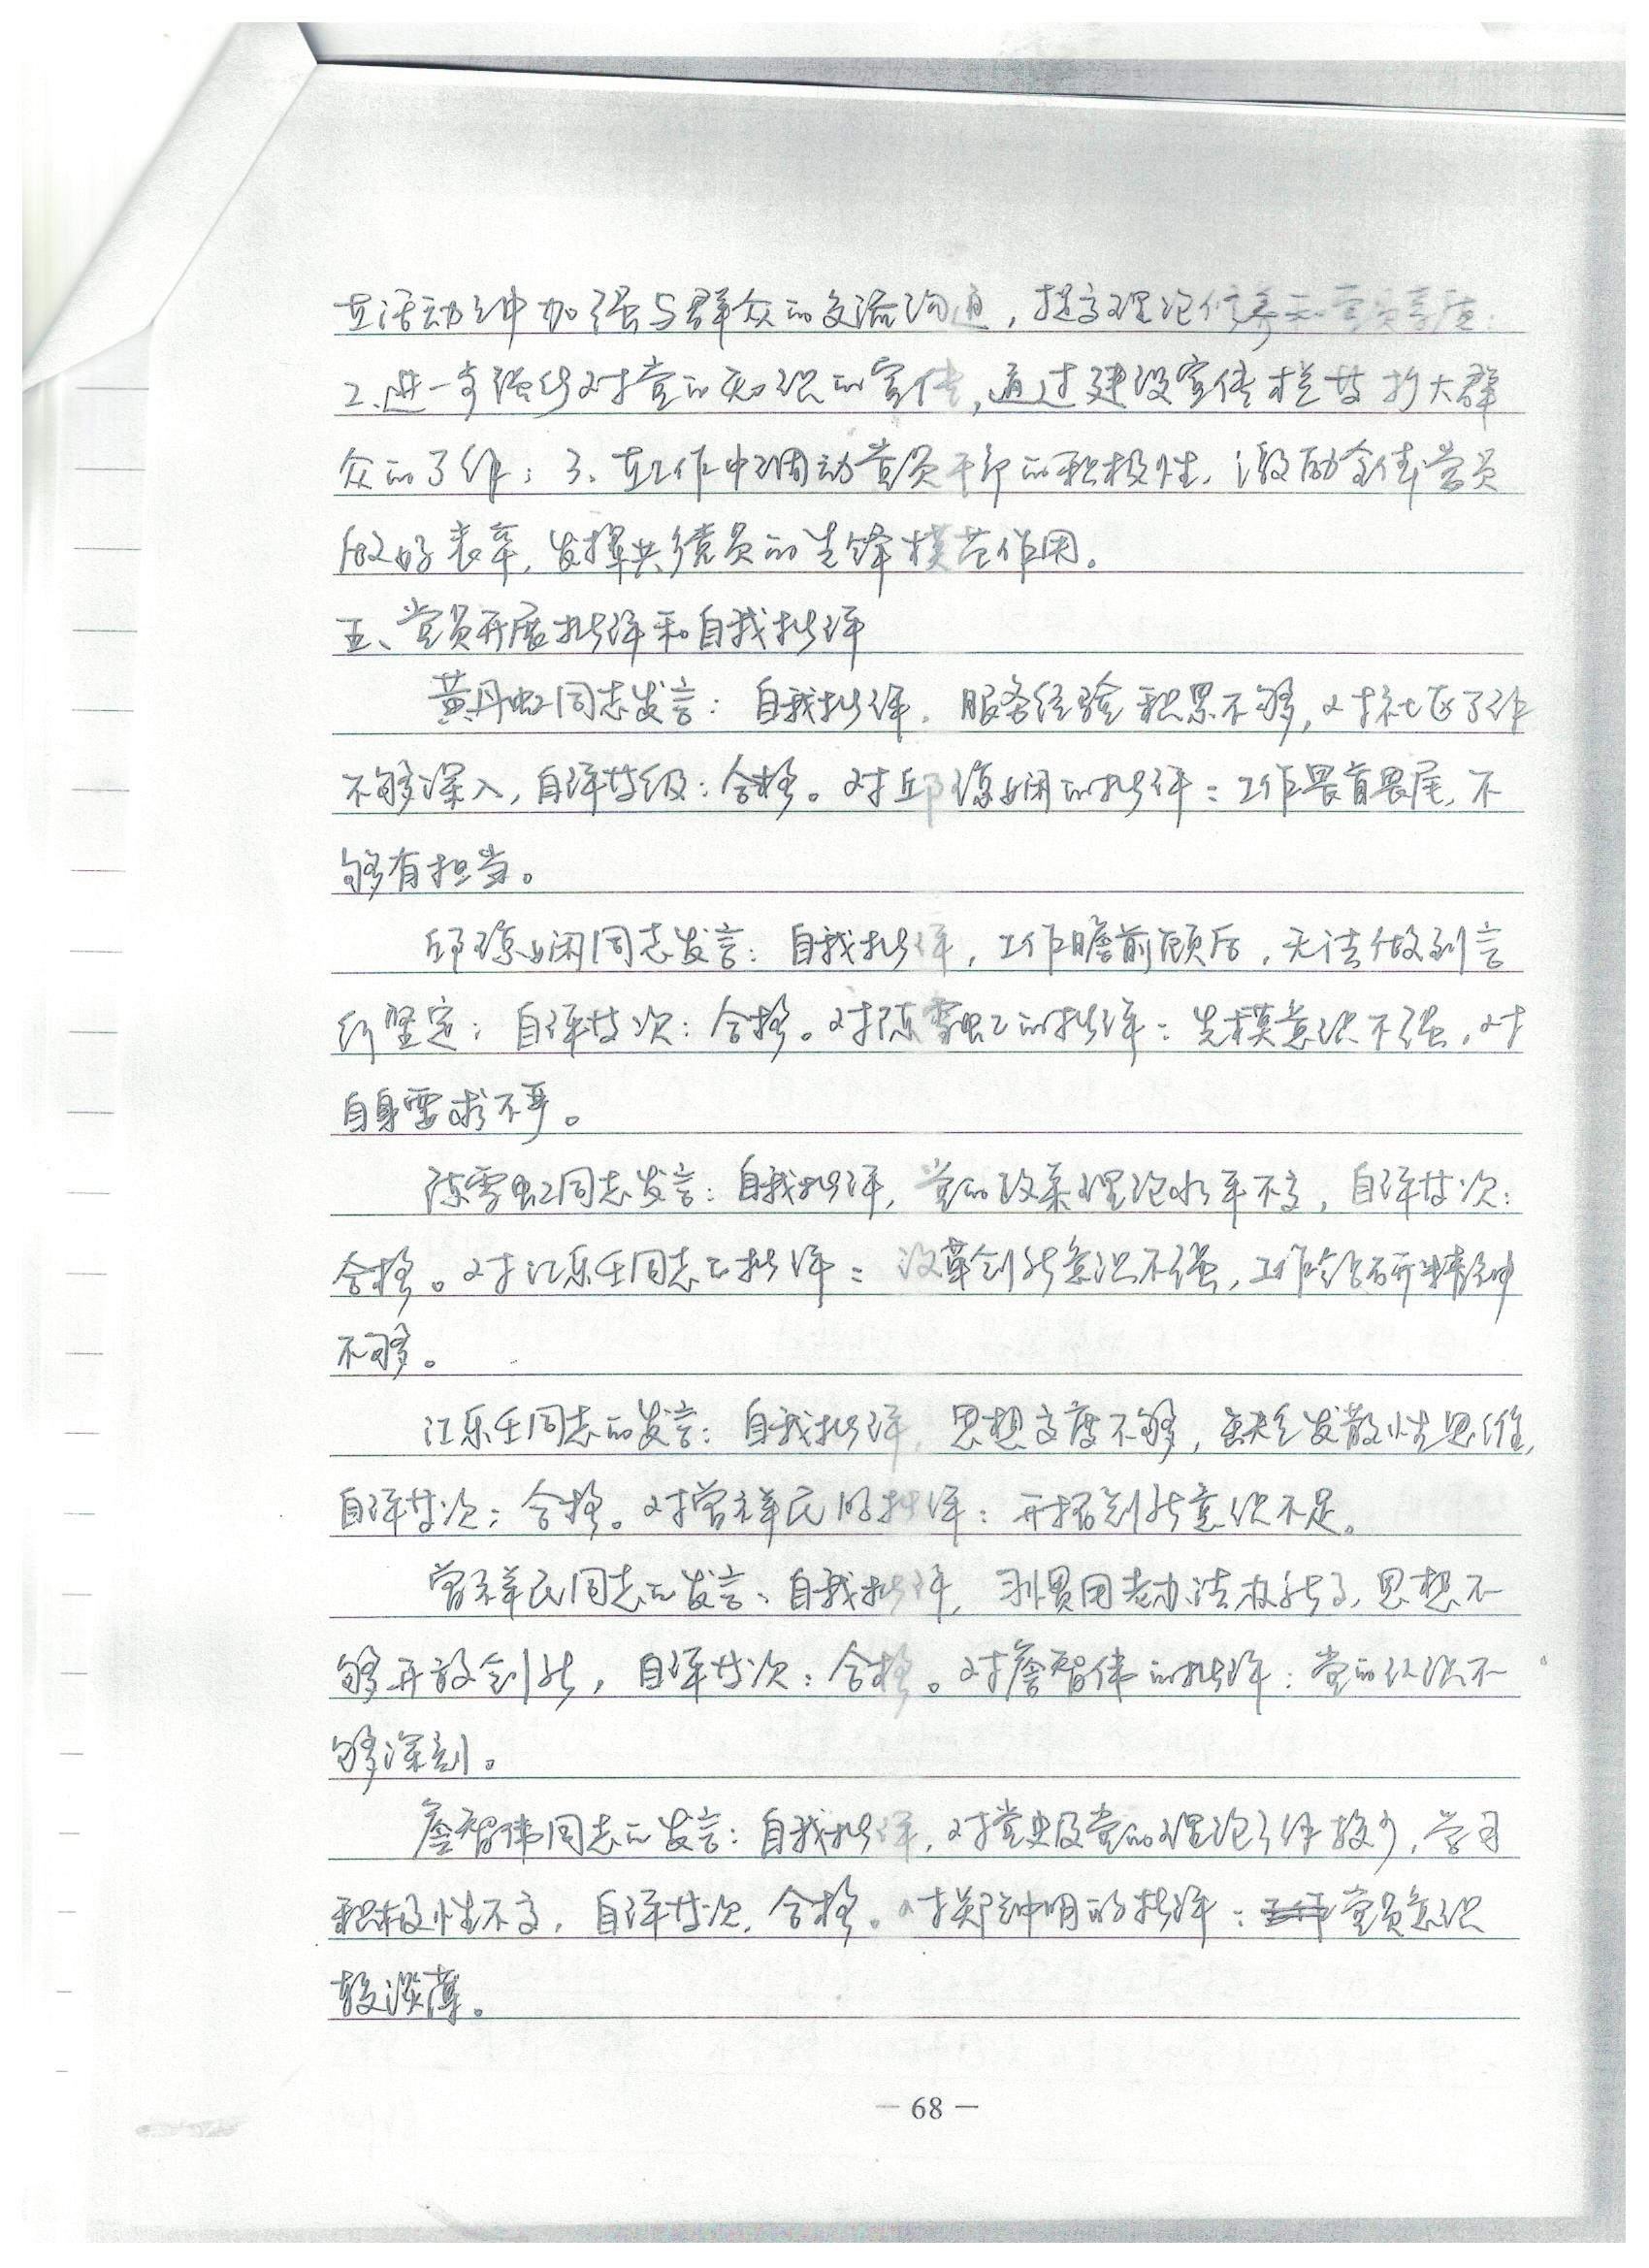 在活动中加强与群众的交流沟通，提高理论修养和党员素质；
2、进一步强化对党的知识的宣传，通过建设宣传栏等扩大群
众的了解；3、在工作中调动党员干部的积极性，激励全体党员
做好表率，发挥共产党员的先锋模范作用。
五、党员开展批评和自我批评
黄丹虹同志发言：自我批评，服务经验积累不够，对社区了解
不够深入，自评等级：合格。对邱琼娴的批评：工作畏首畏尾，不
够有担当。
邱琼娴同志发言：自我批评，工作瞻前顾后，无法做到言
行坚定；自评等次：合格。对陈雪虹的批评：先模意识不强，对
自身要求不严。
陈雪虹同志发言：自我批评，党的政策理论水平不高，自评等次：
合格。对江乐任同志的批评：改革创新意识不强，工作钻研精神
不够。
江乐任同志的发言：自我批评，思想高度不够，缺乏发散性思维，
自评等次：合格。对曾祥民的批评：开拓创新意识不足。
曾祥民同志的发言：自我批评，习惯用老办法办新事，思想不
够开放创新，自评等次：合格。对詹智伟的批评：党的认识不
够深刻。
詹智伟同志的发言：自我批评，对党史及党的理论了解较少，学习
积极性不高，自评等次，合格。对郑钟明的批评：党员意识
较淡薄。
— 68 —